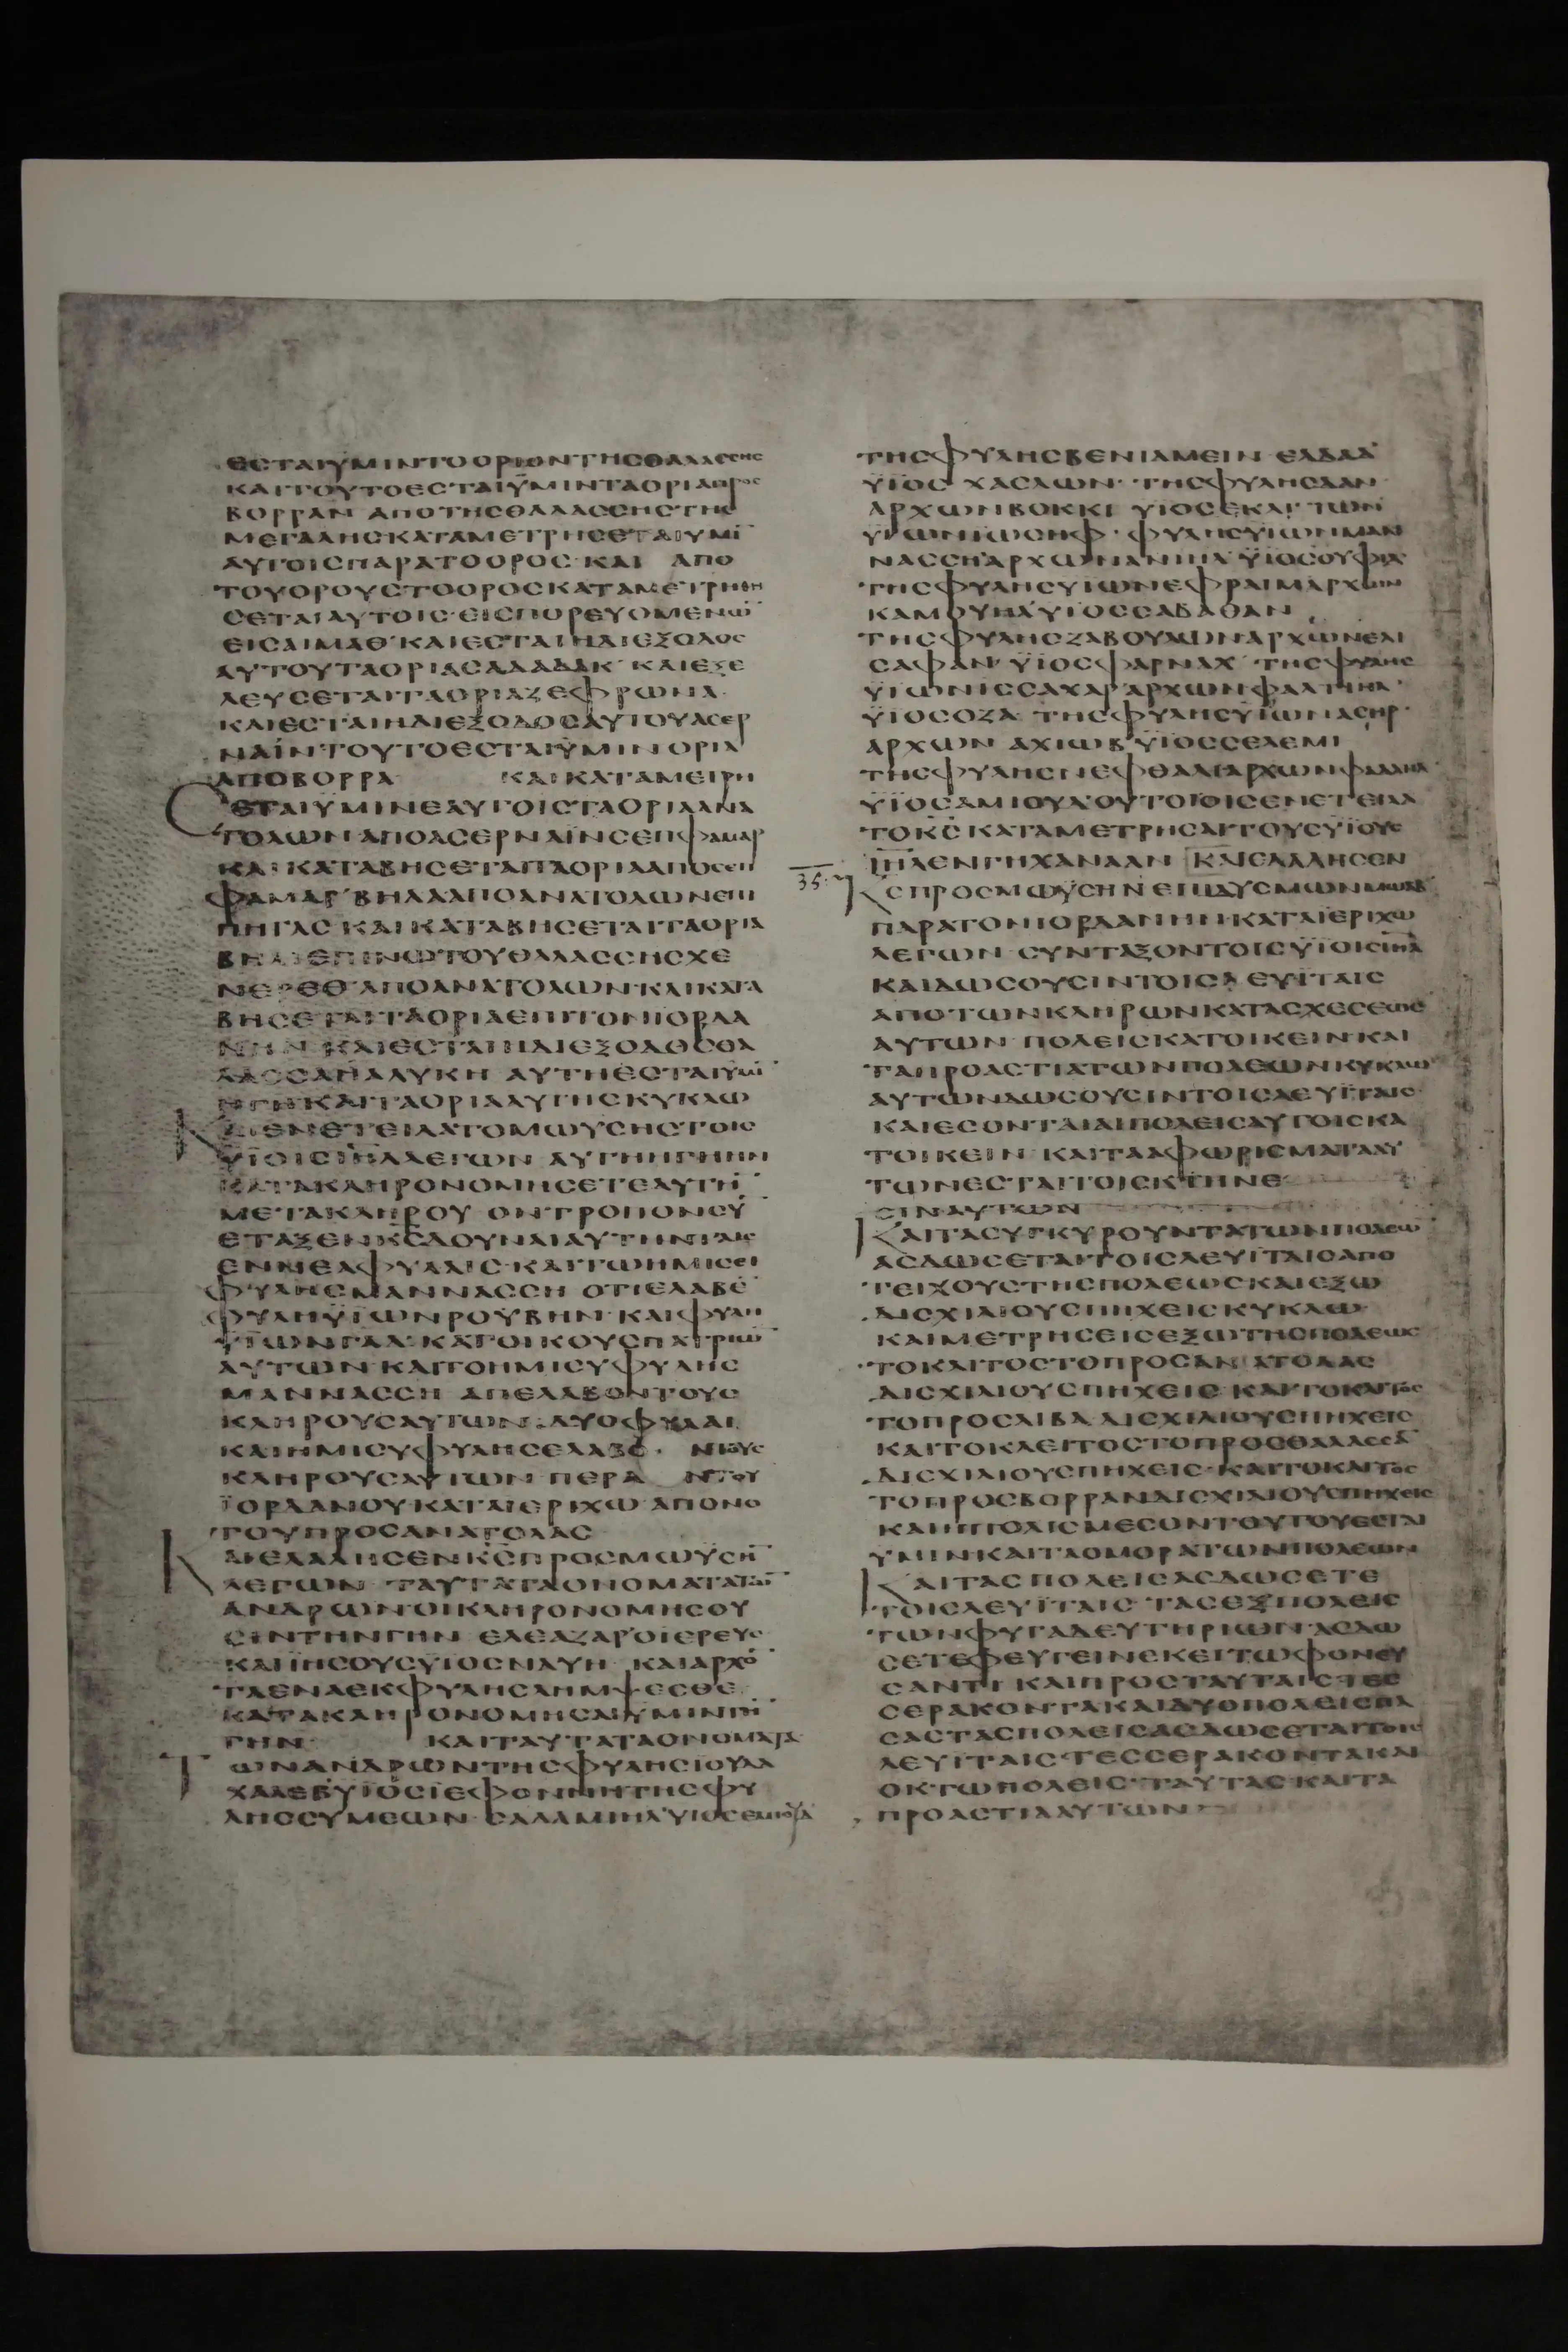 ΕΣΤΑΙΫΜΙΝΤΟΟΡΙΟΝΤΗΣΘΑΛΑΣΣΗΣ
ΚΑΙΤΟΥΤΟΕΣΤΑΙΫΜΙΝΤΑΟΡΙΑΠΡΟΣ
ΒΟΡΡΑΝ ΑΠΟΤΗΣΘΑΛΑΣΣΗΣΤΗΣ
ΜΕΓΑΛΗΣΚΑΤΑΜΕΤΡΗΣΕΤΑΙΥΜΙ
ΑΥΤΟΙΣΠΑΡΑΤΟΟΡΟΣ ΚΑΙ ΑΠΟ
ΤΟΥΟΡΟΥΣΤΟΟΡΟΣΚΑΤΑΜΕΤΡΗΘΗ
ΣΕΤΑΙΑΥΤΟΙΣ ΕΙΣΠΟΡΕΥΟΜΕΝΩ̄
ΕΙΣΑΙΜΑΘ ΚΑΙΕΣΤΑΙΗΔΙΕΞΟΔΟΣ
ΑΥΤΟΥΤΑΟΡΙΑΣΑΔΑΔΑΚ ΚΑΙΕΞΕ
ΛΕΥΣΕΤΑΙΤΑΟΡΙΑΖΕΦΡΩΝΑ
ΚΑΙΕΣΤΑΙΗΔΙΕΞΟΔΟΣΑΥΤΟΥΑΣΕΡ
ΝΑΙΝ ΤΟΥΤΟΕΣΤΑΙΫΜΙΝ ΟΡΙΑ
ΑΠΟΒΟΡΡΑ ΚΑΙΚΑΤΑΜΕΤΡΗ
ΣΕΤΑΙΫΜΙΝΕΑΥΤΟΙΣΤΑΟΡΙΑΑΝΑ
ΤΟΛΩΝ ΑΠΟΑΣΕΡΝΑΪΝΣΕΠΦΑΜΑΡ
ΚΑΙΚΑΤΑΒΗΣΕΤΑΙΤΑΟΡΙΑΑΠΟΣΕΠ
ΦΑΜΑΡ ΒΗΛΑΑΠΟΑΝΑΤΟΛΩΝΕΠΙ
ΠΗΓΑΣ ΚΑΙΚΑΤΑΒΗΣΕΤΑΙΤΑΟΡΙΑ
ΒΗΛΑΕΠΙΝΩΤΟΥΘΑΛΑΣΣΗΣΧΕ
ΝΕΡΕΘ ΑΠΟΑΝΑΤΟΛΩΝ ΚΑΙΚΑΤΑ
ΒΗΣΕΤΑΙΤΑΟΡΙΑΕΠΙΤΟΝΙΟΡΔΑ
ΝΗΝ ΚΑΙΕΣΤΑΙΗΔΙΕΞΟΔΟΣΘΑ
ΛΑΣΣΑΗΑΛΥΚΗ ΑΥΤΗΕΣΤΑΙΥΜῙ
ΗΓΗΚΑΙΤΑΟΡΙΑΑΥΤΗΣΚΥΚΛΩ
ΚΑΙΕΝΕΤΕΙΛΑΤΟΜΩΥΣΗΣΤΟΙΣ
ΥΪΟΙΣΙΗΛΛΕΓΩΝ ΑΥΤΗΗΓΗΗΝ
ΚΑΤΑΚΛΗΡΟΝΟΜΗΣΕΤΕΑΥΤΗ̄
ΜΕΤΑΚΛΗΡΟΥ ΟΝΤΡΟΠΟΝΣῩ
ΕΤΑΞΕΝΚ̄Σ̄ΔΟΥΝΑΙΑΥΤΗΝΤΑΙΣ
ΕΝΝΕΑΦΥΛΑΙΣ ΚΑΙΤΩΗΜΙΣΕΙ
ΦΥΛΗΣΜΑΝΝΑΣΣΗ ΟΤΙΕΛΑΒΕ̄
ΦΥΛΗΫΪΩΝΡΟΥΒΗΝ ΚΑΙΦΥΛΗ
ΫΪΩΝΓΑΔ ΚΑΤΟΙΚΟΥΣΠΑΤΡΙΩ̄
ΑΥΤΩΝ ΚΑΙΤΟΗΜΙΣΥΦΥΛΗΣ
ΜΑΝΝΑΣΣΗ ΑΠΕΛΑΒΟΝΤΟΥΣ
ΚΛΗΡΟΥΣΑΥΤΩΝ ΔΥΟΦΥΛΑΙ
ΚΑΙΗΜΙΣΥΦΥΛΗΣΕΛΑΒΟΝΤΟΥΣ
ΚΛΗΡΟΥΣΑΥΤΩΝ ΠΕΡΑΝΤΟΥ
ΪΟΡΔΑΝΟΥΚΑΤΑΙΕΡΙΧΩ ΑΠΟΝΟ
ΤΟΥΠΡΟΣΑΝΑΤΟΛΑΣ
ΚΑΙΕΛΑΛΗΣΕΝΚ̄Σ̄ΠΡΟΣΜΩΫΣΗ̄
ΛΕΓΩΝ ΤΑΥΤΑΤΑΟΝΟΜΑΤΑΤΩ̄
ΑΝΔΡΩΝΟΙΚΛΗΡΟΝΟΜΗΣΟΥ
ΣΙΝΤΗΝΓΗΝ ΕΛΕΑΖΑΡΟΙΕΡΕΥΣ
ΚΑΙΙΗΣΟΥΣΥΙΟΣΝΑΥΗ ΚΑΙΑΡΧΟ̄
ΤΑΕΝΑΕΚΦΥΛΗΣΛΗΜΨΕΣΘΕ
ΚΑΤΑΚΛΗΡΟΝΟΜΗΣΑΙΥΜΙΝΤΗ̄
ΓΗΝ ΚΑΙΤΑΥΤΑΤΑΟΝΟΜΑΤΑ
ΤΩΝΑΝΔΡΩΝΤΗΣΦΥΛΗΣΙΟΥΔΑ
ΧΑΛΕΒΫΙΟΣΙΕΦΟΝΝΗΤΗΣΦΥ
ΛΗΣΣΥΜΕΩΝ ΣΑΛΑΜΙΗΛΥΙΟΣΕΜΙΟΥΔ
ΤΗΣΦΥΛΗΣΒΕΝΙΑΜΕΙΝ ΕΛΔΑΔ
ΫΙΟΣ ΧΑΣΛΩΝ ΤΗΣΦΥΛΗΣΔΑΝ
ΑΡΧΩΝΒΟΚΚΙ ΥΙΟΣΕΚΛΙ ΤΩΝ
ΥΙΩΝΙΩΣΗΦ ΦΥΛΗΣΥΙΩΝΜΑΝ
ΝΑΣΣΗΑΡΧΩΝΑΝΙΗΛ ΫΙΟΣΟΥΦΙΔ
ΤΗΣΦΥΛΗΣΥΙΩΝΕΦΡΑΙΜΑΡΧΩΝ
ΚΑΜΟΥΗΛΥΙΟΣΣΑΒΑΘΑΝ
ΤΗΣΦΥΛΗΣΖΑΒΟΥΛΩΝΑΡΧΩΝΕΛΙ
ΣΑΦΑΝ ΫΙΟΣΦΑΡΝΑΧ ΤΗΣΦΥΛΗΣ
ΥΙΩΝΙΣΣΑΧΑΡ ΑΡΧΩΝΦΑΛΤΙΗΛ
ΫΙΟΣΟΖΑ ΤΗΣΦΥΛΗΣΥΙΩΝΑΣΗΡ
ΑΡΧΩΝ ΑΧΙΩΒ ΫΙΟΣΣΕΛΕΜΙ
ΤΗΣΦΥΛΗΣΝΕΦΘΑΛΙΑΡΧΩΝΦΑΔΑΗΛ
ΫΙΟΣΑΜΙΟΥΔ ΟΥΤΟΙΟΙΣΕΝΕΤΕΙΛΑ
ΤΟΚ̄Σ̄ΚΑΤΑΜΕΤΡΗΣΑΙΤΟΥΣΥΙΟΥΣ
ΙΗΛΕΝΓΗΧΑΝΑΑΝ ΚΑΙΕΛΑΛΗΣΕΝ
35
Κ̄Σ̄ΠΡΟΣΜΩΫΣΗΝΕΠΙΔΥΣΜΩΝΜΩΑΒ
ΠΑΡΑΤΟΝΙΟΡΔΑΝΗΝΚΑΤΑΪΕΡΙΧΩ
ΛΕΓΩΝ ΣΥΝΤΑΞΟΝΤΟΙΣΥΪΟΙΣΙΗΛ
ΚΑΙΔΩΣΟΥΣΙΝΤΟΙΣΛΕΥΪΤΑΙΣ
ΑΠΟΤΩΝΚΛΗΡΩΝΚΑΤΑΣΧΕΣΕΩΣ
ΑΥΤΩΝ ΠΟΛΕΙΣΚΑΤΟΙΚΕΙΝΚΑΙ
ΤΑΠΡΟΑΣΤΙΑΤΩΝΠΟΛΕΩΝΚΥΚΛΩ
ΑΥΤΩΝΔΩΣΟΥΣΙΝΤΟΙΣΛΕΥΪΤΑΙΣ
ΚΑΙΕΣΟΝΤΑΙΑΙΠΟΛΕΙΣΑΥΤΟΙΣΚΑ
ΤΟΙΚΕΙΝ ΚΑΙΤΑΑΦΩΡΙΣΜΑΤΑΑΥ
ΤΩΝΕΣΤΑΙΤΟΙΣΚΤΗΝΕ
ΣΙΝΑΥΤΩΝ
ΚΑΙΤΑΣΥΓΚΥΡΟΥΝΤΑΤΩΝΠΟΛΕΩ
ΑΣΔΩΣΕΤΑΙΤΟΙΣΛΕΥΪΤΑΙΣΑΠΟ
ΤΕΙΧΟΥΣΤΗΣΠΟΛΕΩΣΚΑΙΕΞΩ
ΔΙΣΧΙΛΙΟΥΣΠΗΧΕΙΣΚΥΚΛΩ
ΚΑΙΜΕΤΡΗΣΕΙΣΕΞΩΤΗΣΠΟΛΕΩΣ
ΤΟΚΛΙΤΟΣΤΟΠΡΟΣΑΝΑΤΟΛΑΣ
ΔΙΣΧΙΛΙΟΥΣΠΗΧΕΙΣ ΚΑΙΤΟΚΛΙΤΟΣ
ΤΟΠΡΟΣΛΙΒΑ ΔΙΣΧΙΛΙΟΥΣΠΗΧΕΙΣ
ΚΑΙΤΟΚΛΕΙΤΟΣΤΟΠΡΟΣΘΑΛΑΣΣᾹ
ΔΙΣΧΙΛΙΟΥΣΠΗΧΕΙΣ ΚΑΙΤΟΚΛΙΤΟΣ
ΤΟΠΡΟΣΒΟΡΡΑΝΔΙΣΧΙΛΙΟΥΣΠΗΧΕΙΣ
ΚΑΙΗΠΟΛΙΣΜΕΣΟΝΤΟΥΤΟΥΕΣΤΑΙ
ΥΜΙΝΚΑΙΤΑΟΜΟΡΑΤΩΝΠΟΛΕΩΝ
ΚΑΙΤΑΣΠΟΛΕΙΣΑΣΔΩΣΕΤΕ
ΤΟΙΣΛΕΥΪΤΑΙΣ ΤΑΣΕΞΠΟΛΕΙΣ
ΤΩΝΦΥΓΑΔΕΥΤΗΡΙΩΝ ΑΣΔΩ
ΣΕΤΕΦΕΥΓΕΙΝΕΚΕΙΤΩΦΟΝΕΥ
ΣΑΝΤΙ ΚΑΙΠΡΟΣΤΑΥΤΑΙΣ ΤΕΣ
ΣΕΡΑΚΟΝΤΑΚΑΙΔΥΟΠΟΛΕΙΣΠΑ
ΣΑΣΤΑΣΠΟΛΕΙΣΑΣΔΩΣΕΤΑΙΤΟΙΣ
ΛΕΥΪΤΑΙΣ ΤΕΣΣΕΡΑΚΟΝΤΑΚΑΙ
ΟΚΤΩΠΟΛΕΙΣ ΤΑΥΤΑΣ ΚΑΙΤΑ
ΠΡΟΑΣΤΙΑΑΥΤΩΝ